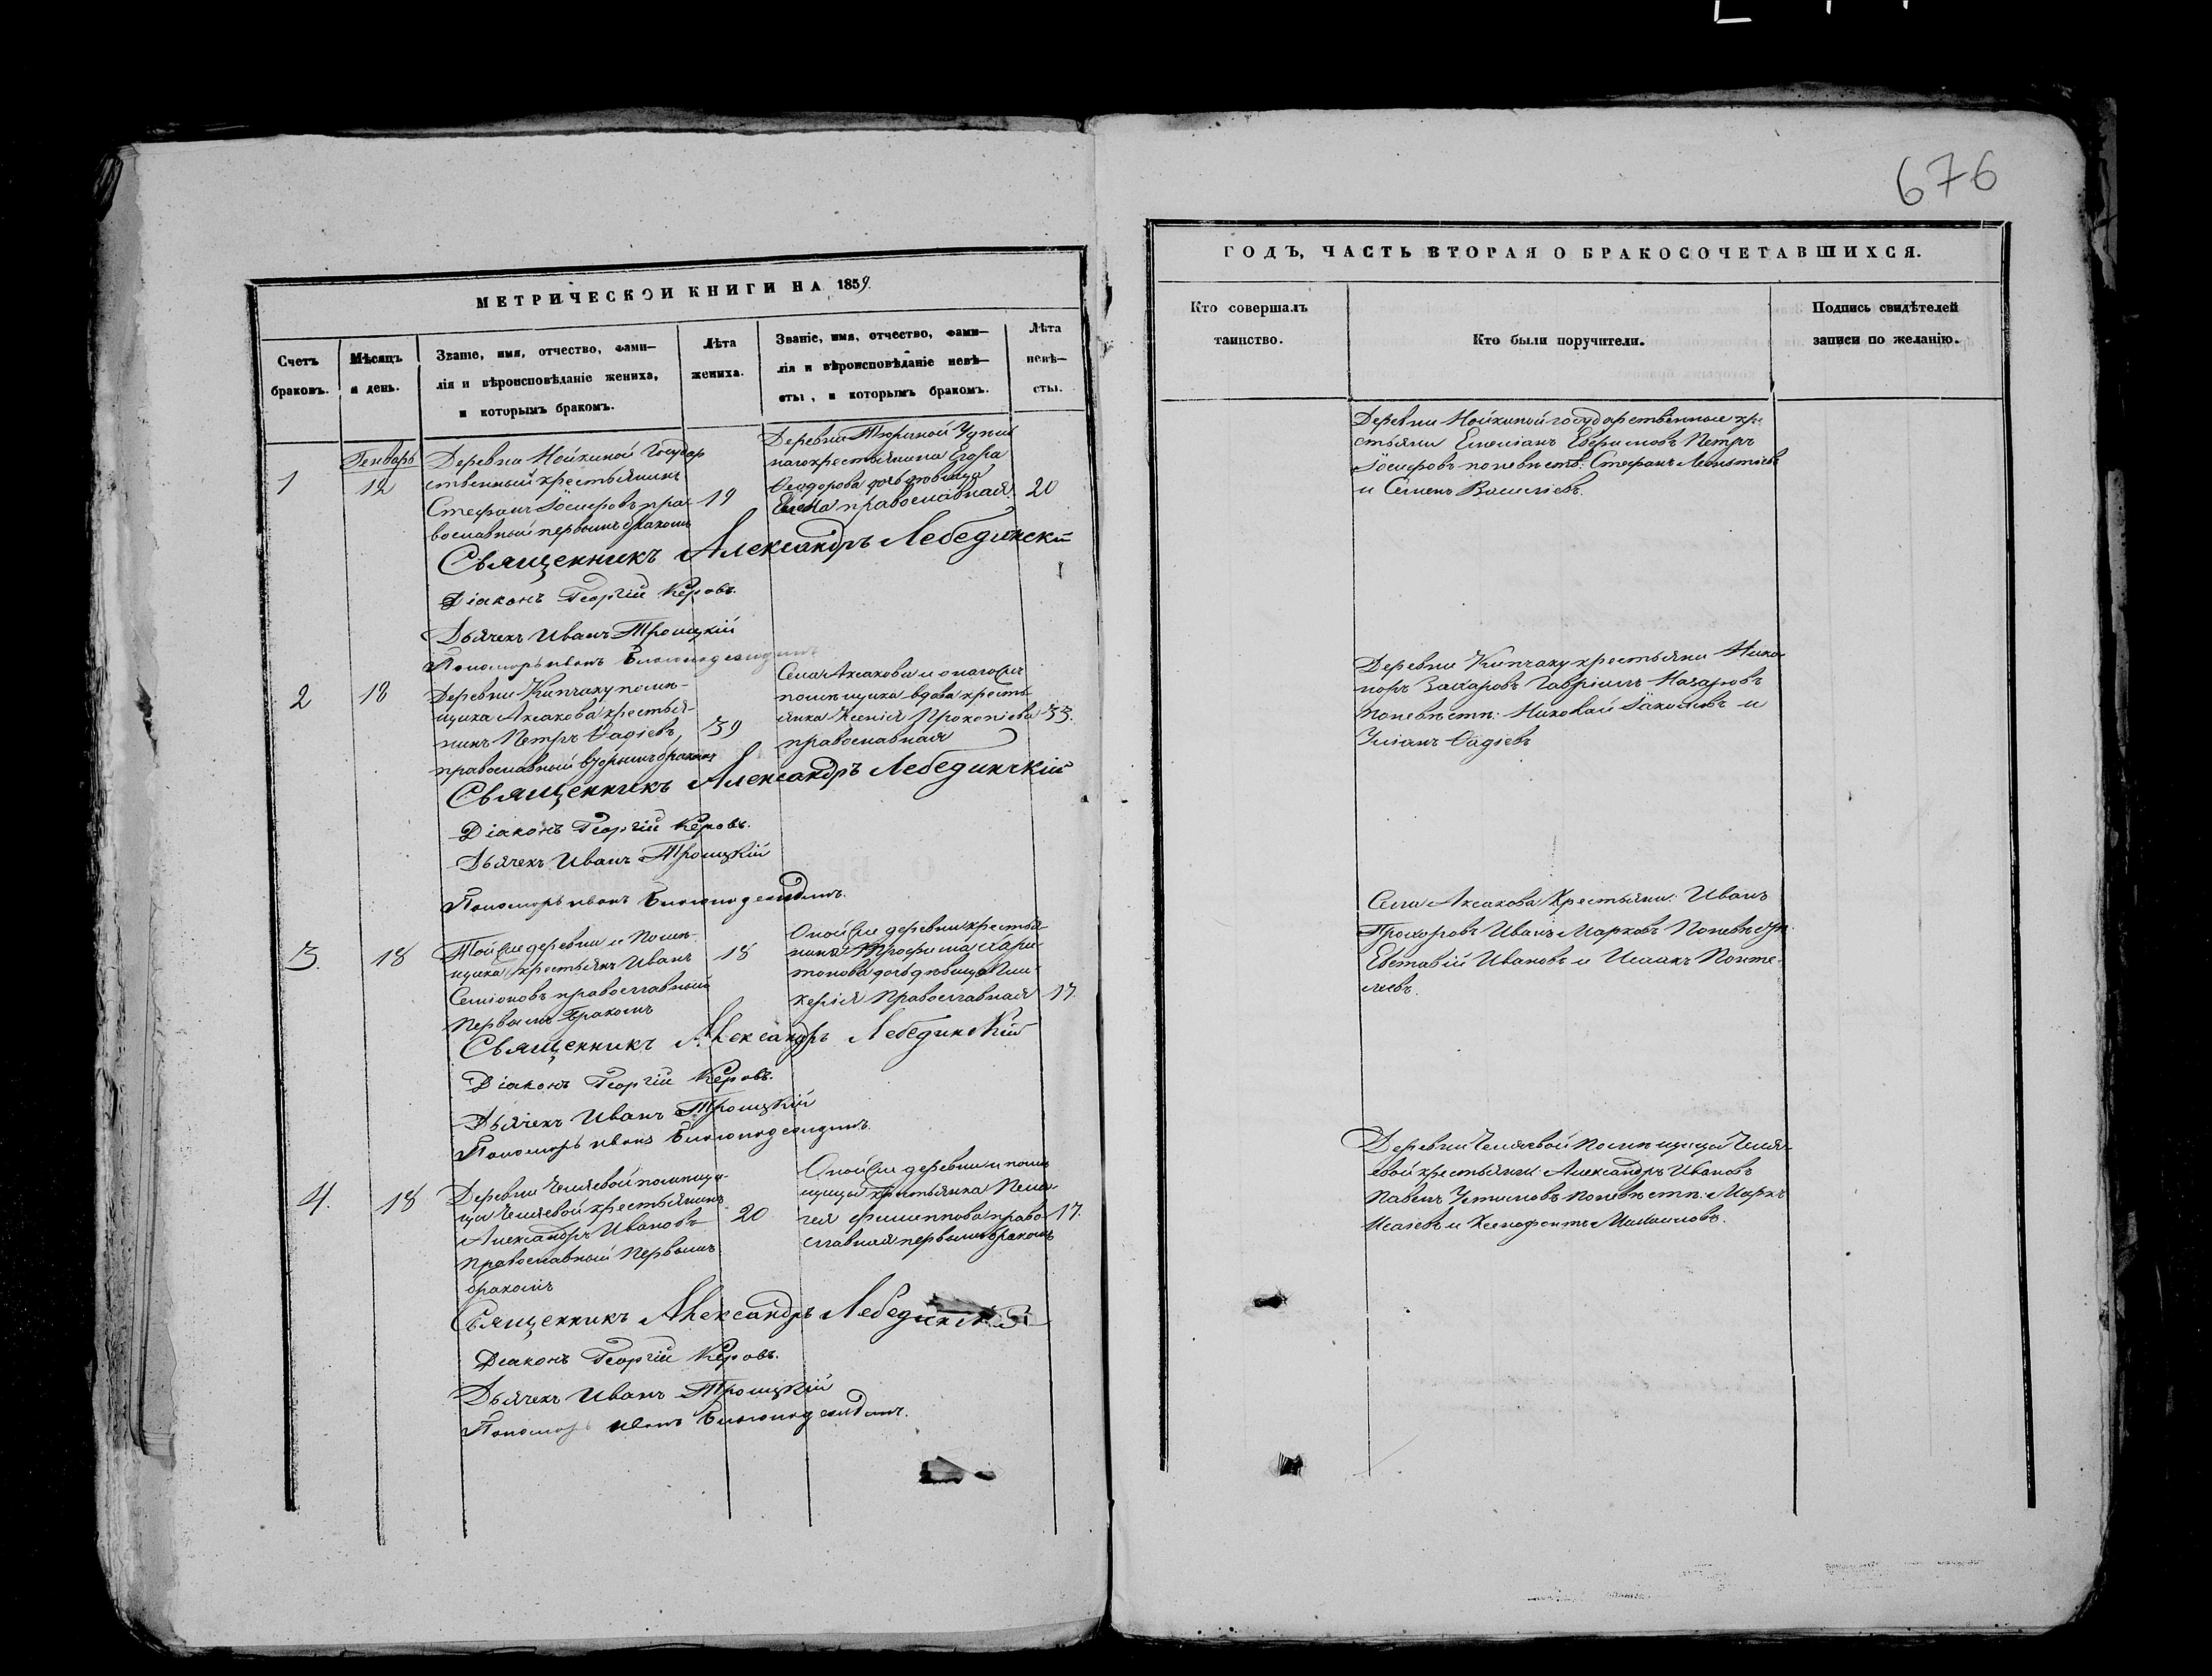 676
МЕТРИЧЕСКОЙ КНИГИ НА 1859.
ГОДЪ, ЧАСТЬ ВТОРАЯ О БРАКОСОЧЕТАВШИХСЯ.
Счетъ
браковъ.
Мѣсяцъ
и день.
Званіе, имя, отчество, фами-
лія и вѣроисповѣданіе жениха,
и которымъ бракомъ.
Лѣта
жениха.
Званіе, имя, отчество, фами-
лія и вѣроисповѣданіе невѣ-
сты, и которымъ бракомъ.
Лѣта
невѣ-
сты.
Кто совершалъ
таинство.
Кто были поручители.
Подпись свидѣтелей
записи по желанію.
1
Генварь
12
Деревни Мойкиной Государ
ственный крестьянинъ
Стефанъ Іосифовъ пра-
вославный первымъ бракомъ
19
Деревни
крестьянина Егора
Феодорова дочь девица
Елена православная.
20
Священникъ Александръ Лебединскій
Діаконъ Георгій Керовъ.
Дьячекъ Иванъ Троицкій
Пономарь
Деревни Мойкиной государственные кре-
стьяни Емелианъ Петръ
Іосифовъ по невѣстѣ: Стефанъ Леонтьевъ
и Семенъ Василіевъ.
2
18
Деревни Кипчаку помѣ-
щика Аксакова крестья-
нинъ Петръ Фадіевъ,
православный вторымъ бракомъ
39
Села Аксакова и онаго же
помѣщика вдова кресть-
янка Ксенія Прокопіева
православная
33.
Священникъ Александръ Лебединскій
Діаконъ Георгій Керовъ.
Дьячекъ Иванъ Троицкій
Пономарь
Деревни Кипчаку крестьяни Ника-
норъ Захаровъ Гавріилъ Назаровъ
по невѣстѣ: Николай Іаковлевъ и
Фадіевъ
3.
18
Той же деревни и помѣ-
щика крестьянъ Иванъ
Семіоновъ православный
Первымъ Бракомъ
18
Оной же деревни крестья-
нина Трофима Хари-
тонова дочь девица
Православная
17
Священникъ Александръ Лебединскій
Діаконъ Георгій Керовъ.
Дьячекъ Иванъ Троицкій
Пономарь
Села Аксакова Крестьяни: Иванъ
Прохоровъ Иванъ Марковъ По невѣстѣ
Евстафій Ивановъ и Исаакъ Понте-
леевъ.
4.
18
Деревни помѣщи-
цы крестьянинъ
Александръ Ивановъ
православный Первымъ
бракомъ
20
Оной же деревни и помѣ
щицы крестьянка Пела-
гея Филиппова право-
славная первымъ бракомъ
17.
Священникъ Александръ Лебединскій
Діаконъ Георгій Керовъ.
Дьячекъ Иванъ Троицкій
Пономарь
Деревни помѣщицы
крестьяни: Александръ Ивановъ
Павелъ Устиновъ по невѣстѣ: Маркъ
Исаіевъ и Ксенофонтъ